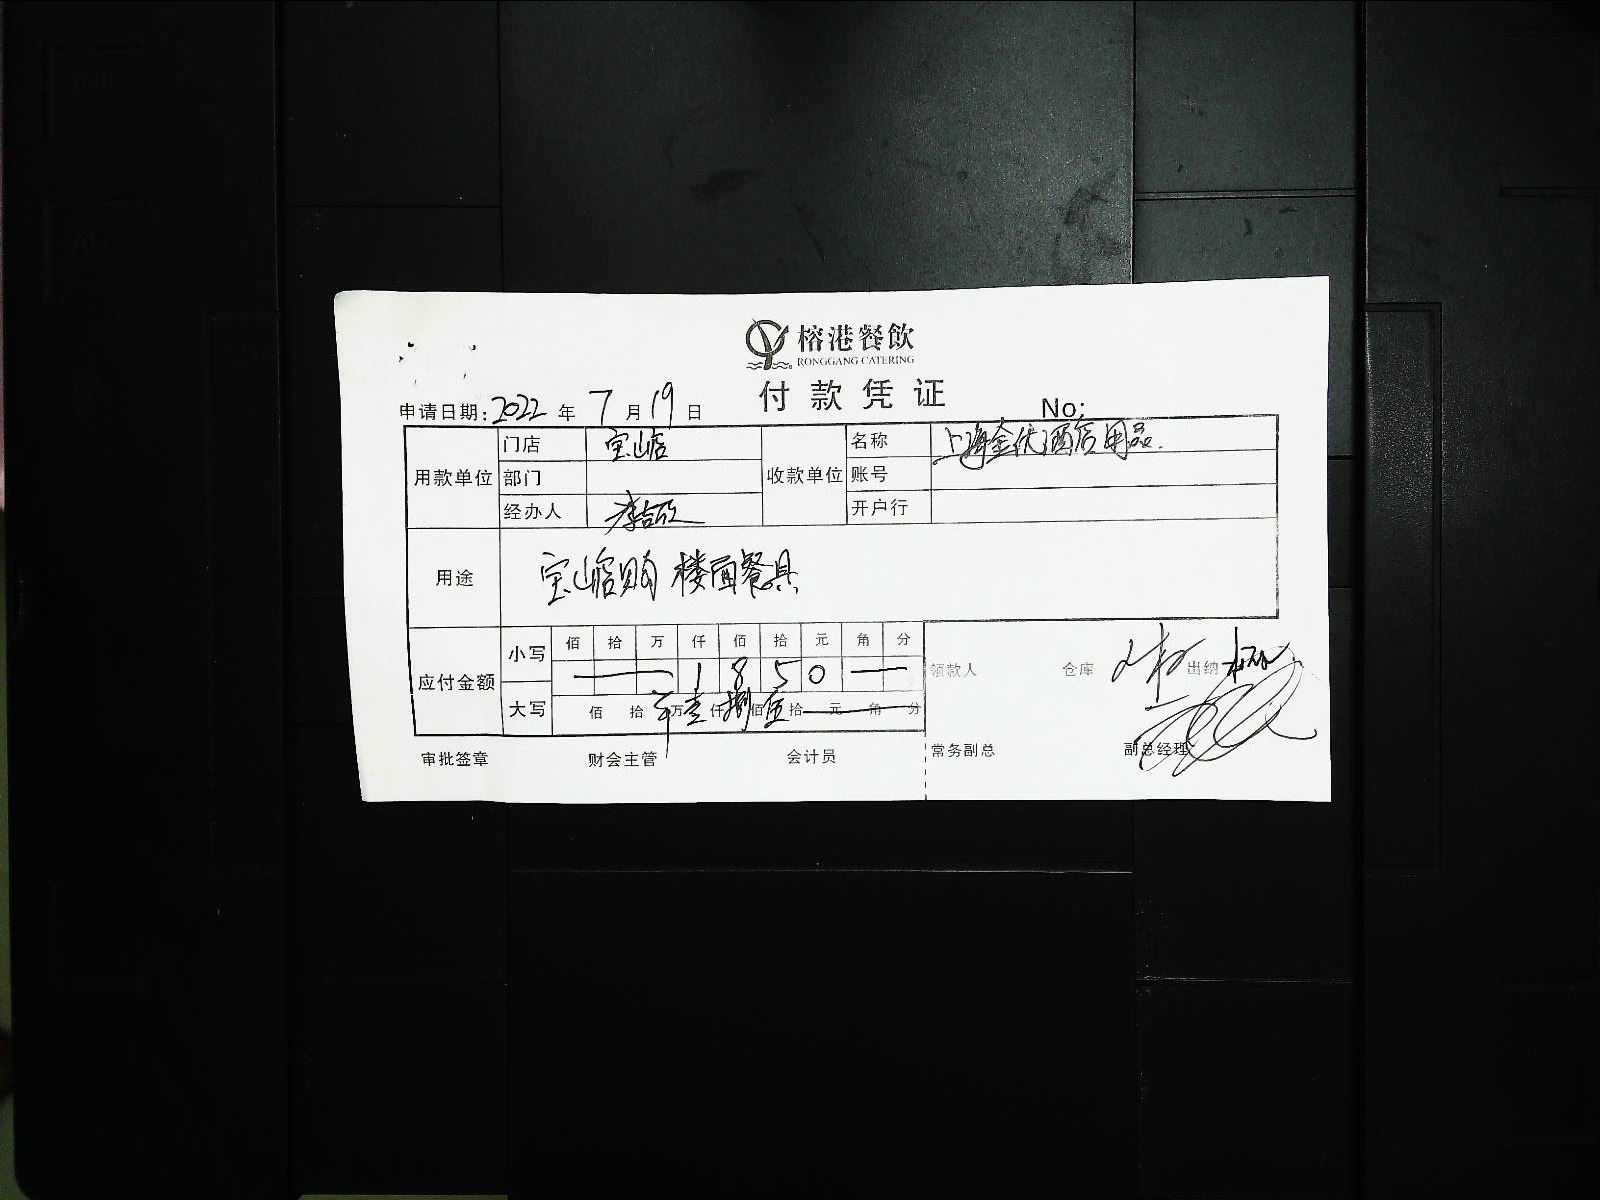 榕港餐飲
RONGGANG CATERING
付款凭证
申请日期:2022年7月19日 No:
用款单位 门店 宝山店 收款单位 名称 上海金优酒店用品.
部门 账号
经办人 开户行
用途 宝山店购楼面餐具
应付金额 小写 佰 拾 万 仟 佰 拾 元 角 分
1 8 5 0
大写 佰 拾 万 壹 仟 捌 佰 伍 拾 元 角 分
领款人 仓库 出纳
审批签章 财会主管 会计员 常务副总 副总经理